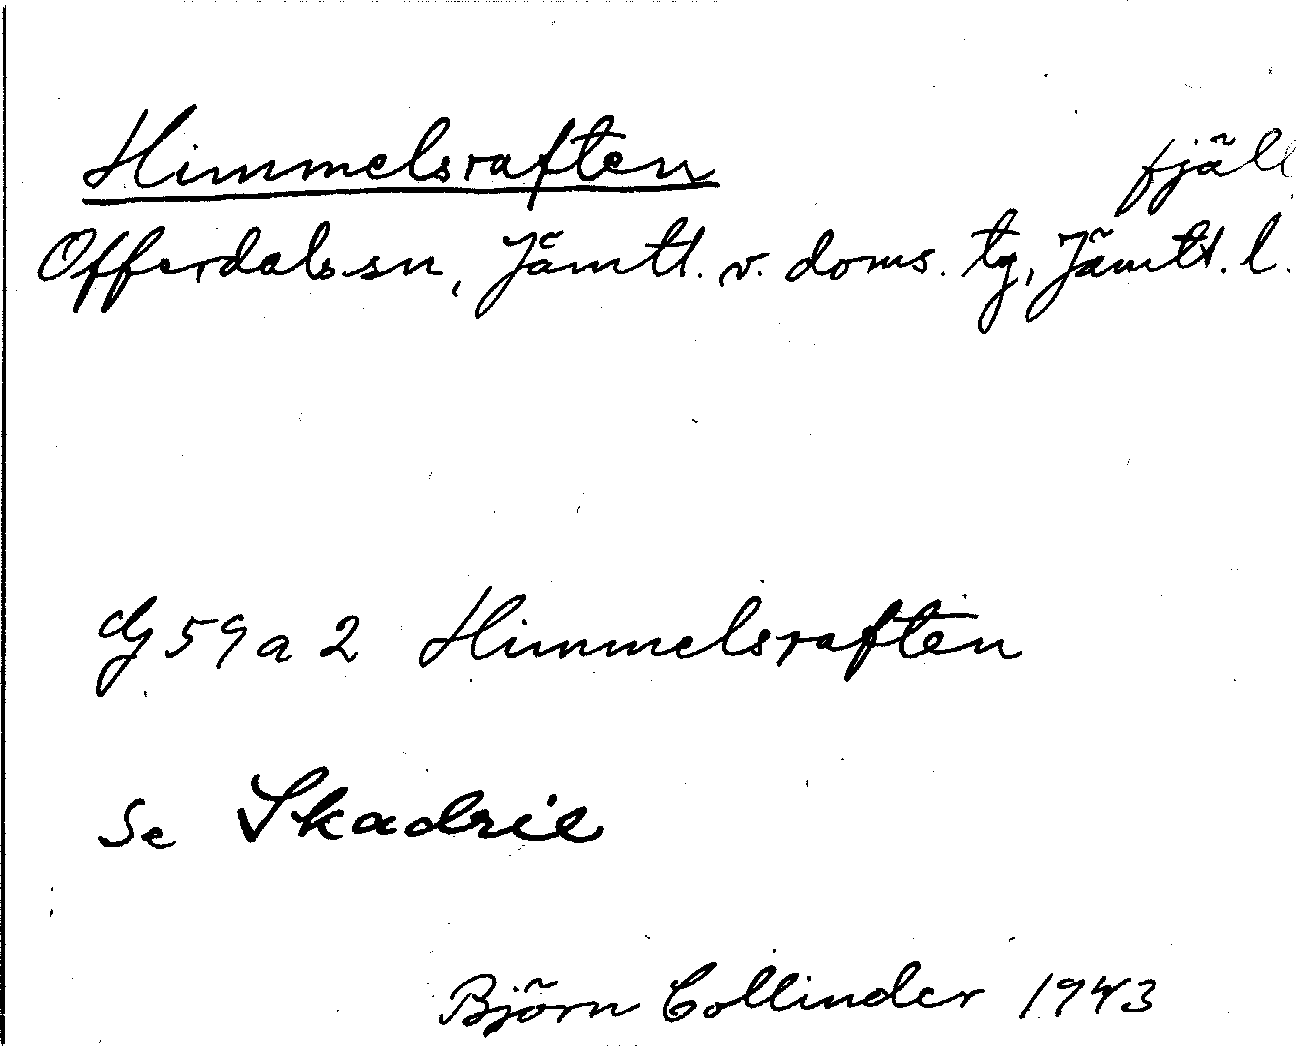 Himmelsraften fjäll
Offerdals sn, Jämtl. v. doms. tg, Jämtl. l.
G 59 a 2 Himmelsraften
Se Skadrie
Björn Collinder 1943